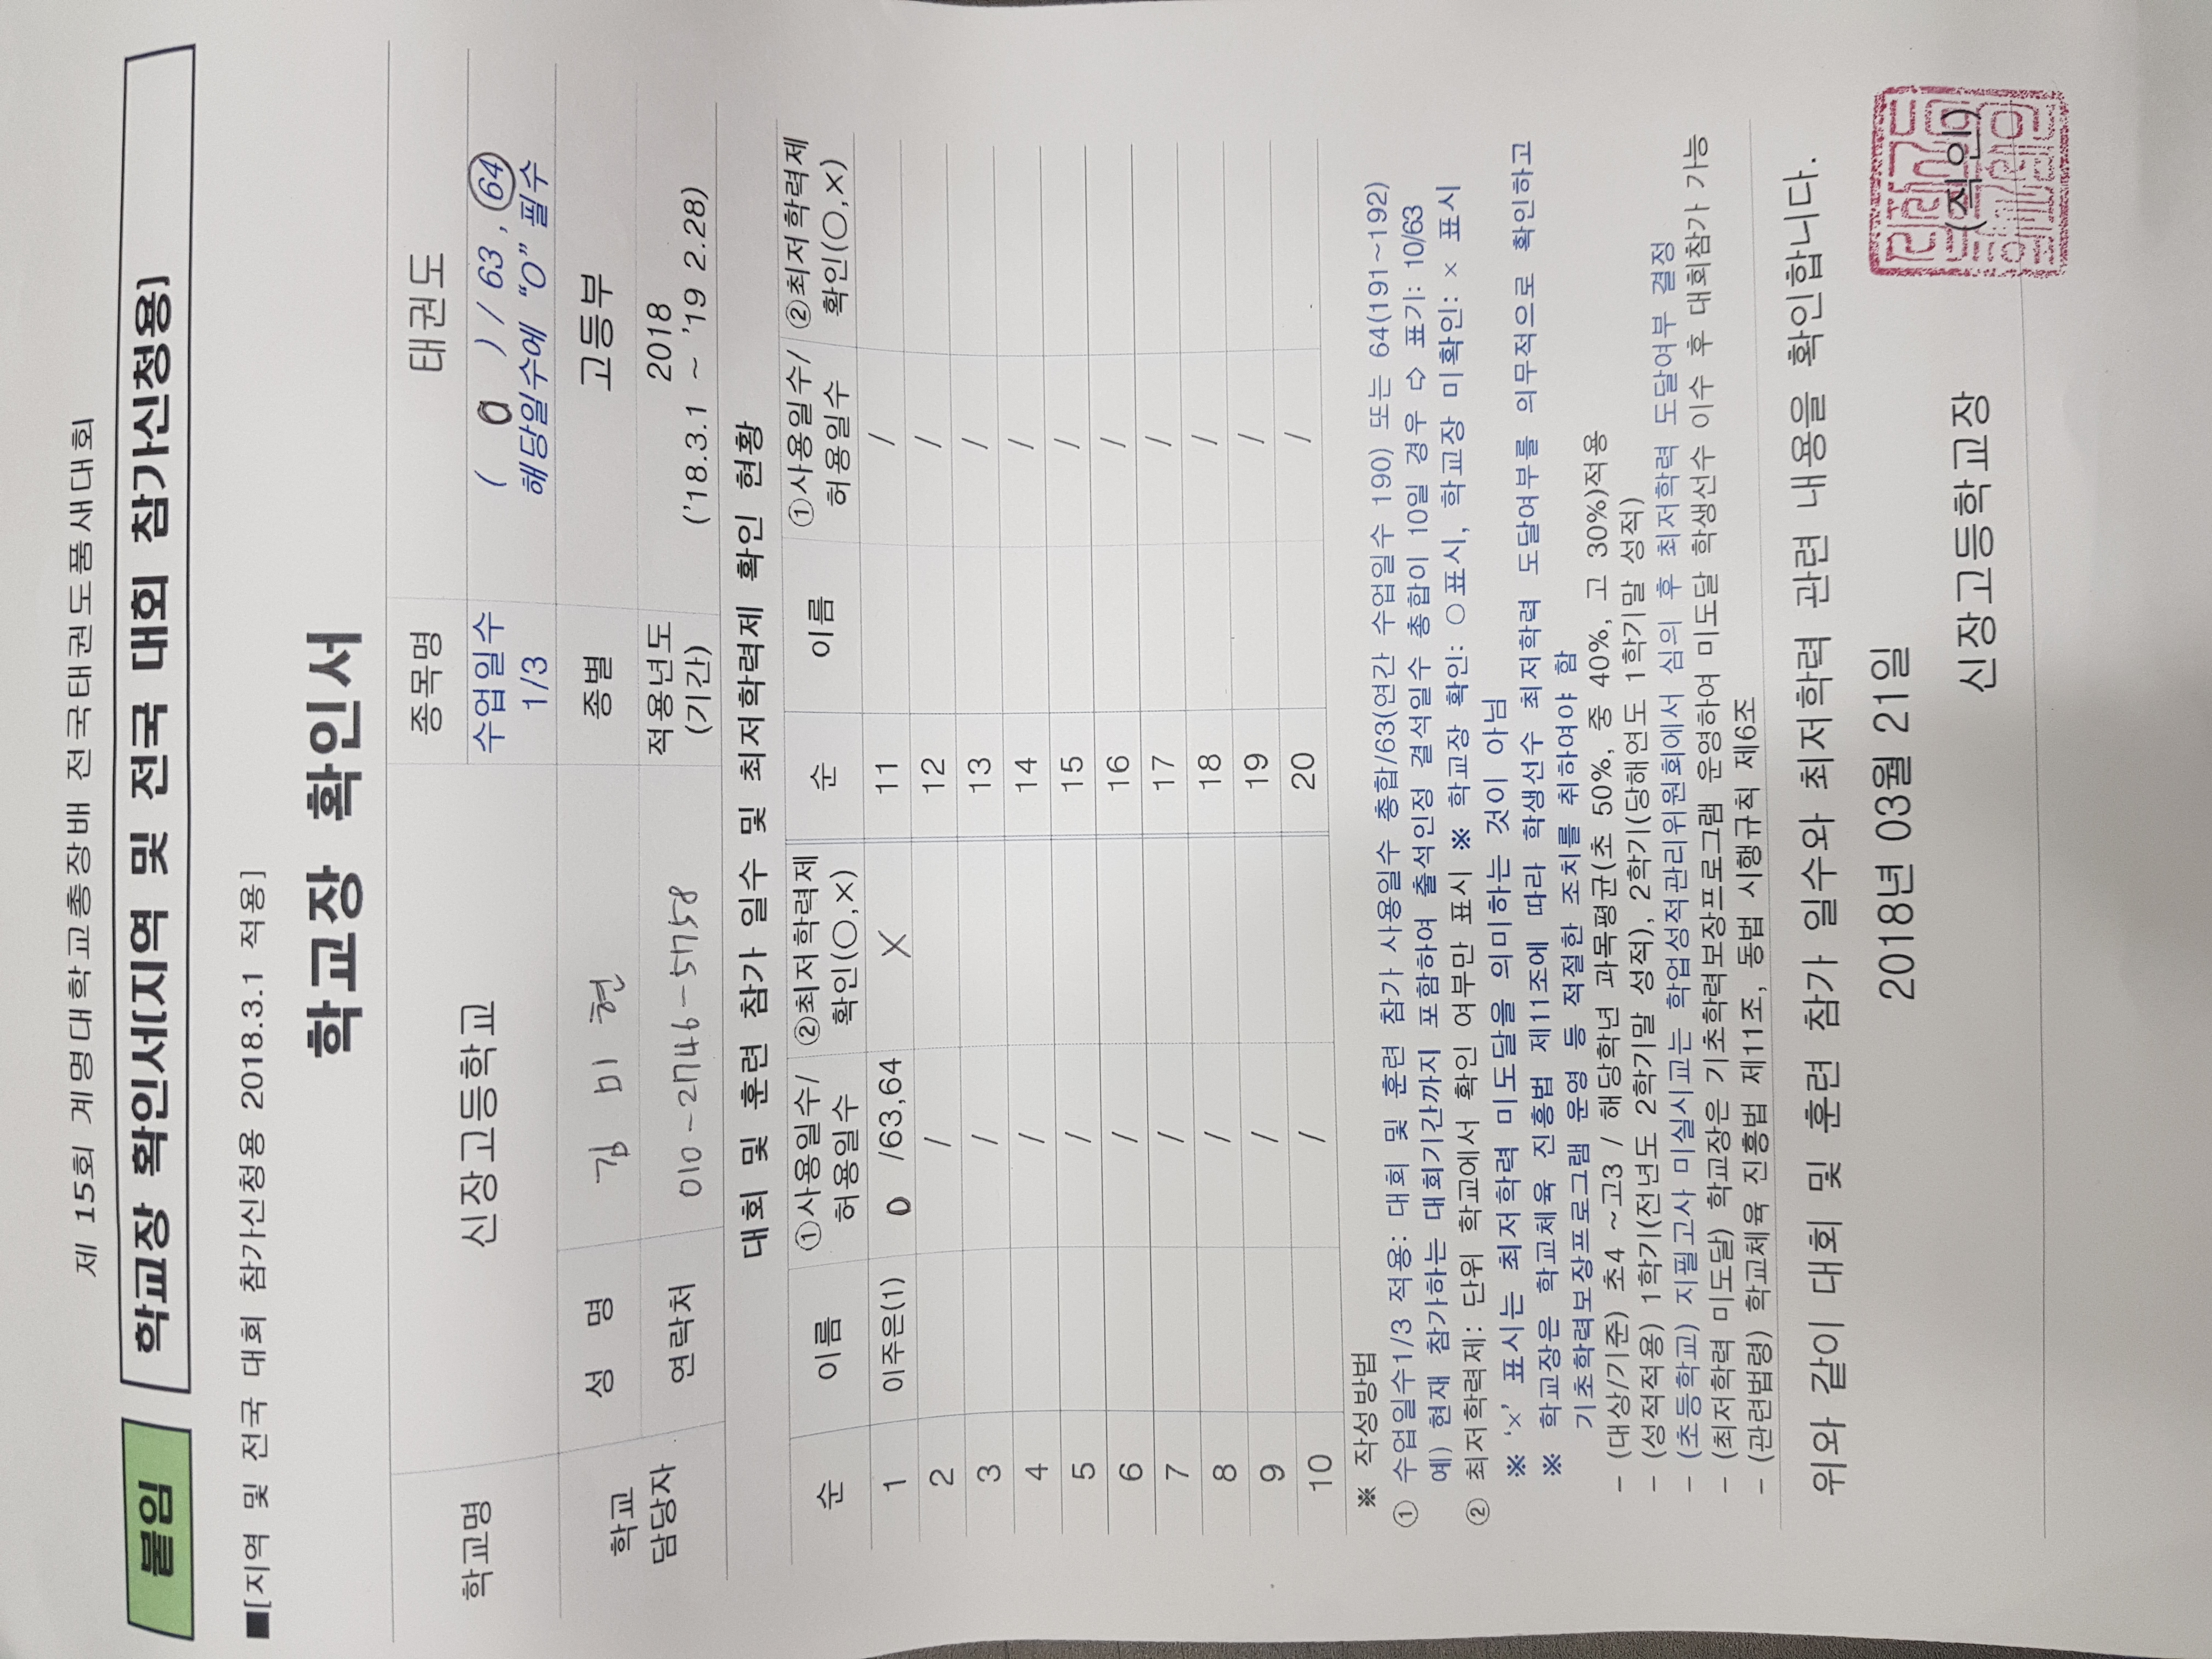 제 15회 계명대학교총장배 전국태권도품새대회
붙임 학교장 확인서[지역 및 전국 대회 참가신청용]
■[지역 및 전국 대회 참가신청용 2018.3.1 적용]
학교장 확인서
학교명 신장고등학교 종목명 태권도
수업일수 1/3 ( 0 ) / 63 , 64
해당일수에 “O” 필수
학교 담당자 성 명 김 미 현 종별 고등부
연락처 010-2746-5758 적용년도 (기간) 2018
('18.3.1 ~ '19 2.28)
대회 및 훈련 참가 일수 및 최저학력제 확인 현황
순 이름 ①사용일수/ 허용일수 ②최저학력제 확인(○,×) 순 이름 ①사용일수/ 허용일수 ②최저학력제 확인(○,×)
1 이주은(1) 0 /63,64 X 11 /
2 / 12 /
3 / 13 /
4 / 14 /
5 / 15 /
6 / 16 /
7 / 17 /
8 / 18 /
9 / 19 /
10 / 20 /
※ 작성방법
① 수업일수1/3 적용: 대회 및 훈련 참가 사용일수 총합/63(연간 수업일수 190) 또는 64(191~192)
예) 현재 참가하는 대회기간까지 포함하여 출석인정 결석일수 총합이 10일 경우 ⇨ 표기: 10/63
② 최저학력제: 단위 학교에서 확인 여부만 표시 ※ 학교장 확인: ○표시, 학교장 미확인: × 표시
※ ‘×’ 표시는 최저학력 미도달을 의미하는 것이 아님
※ 학교장은 학교체육 진흥법 제11조에 따라 학생선수 최저학력 도달여부를 의무적으로 확인하고
기초학력보장프로그램 운영 등 적절한 조치를 취하여야 함
- (대상/기준) 초4 ~고3 / 해당학년 과목평균(초 50%, 중 40%, 고 30%)적용
- (성적적용) 1학기(전년도 2학기말 성적), 2학기(당해연도 1학기말 성적)
- (초등학교) 지필고사 미실시교는 학업성적관리위원회에서 심의 후 최저학력 도달여부 결정
- (최저학력 미도달) 학교장은 기초학력보장프로그램 운영하여 미도달 학생선수 이수 후 대회참가 가능
- (관련법령) 학교체육 진흥법 제11조, 동법 시행규칙 제6조
위와 같이 대회 및 훈련 참가 일수와 최저학력 관련 내용을 확인합니다.
2018년 03월 21일
신장고등학교장 (직인)